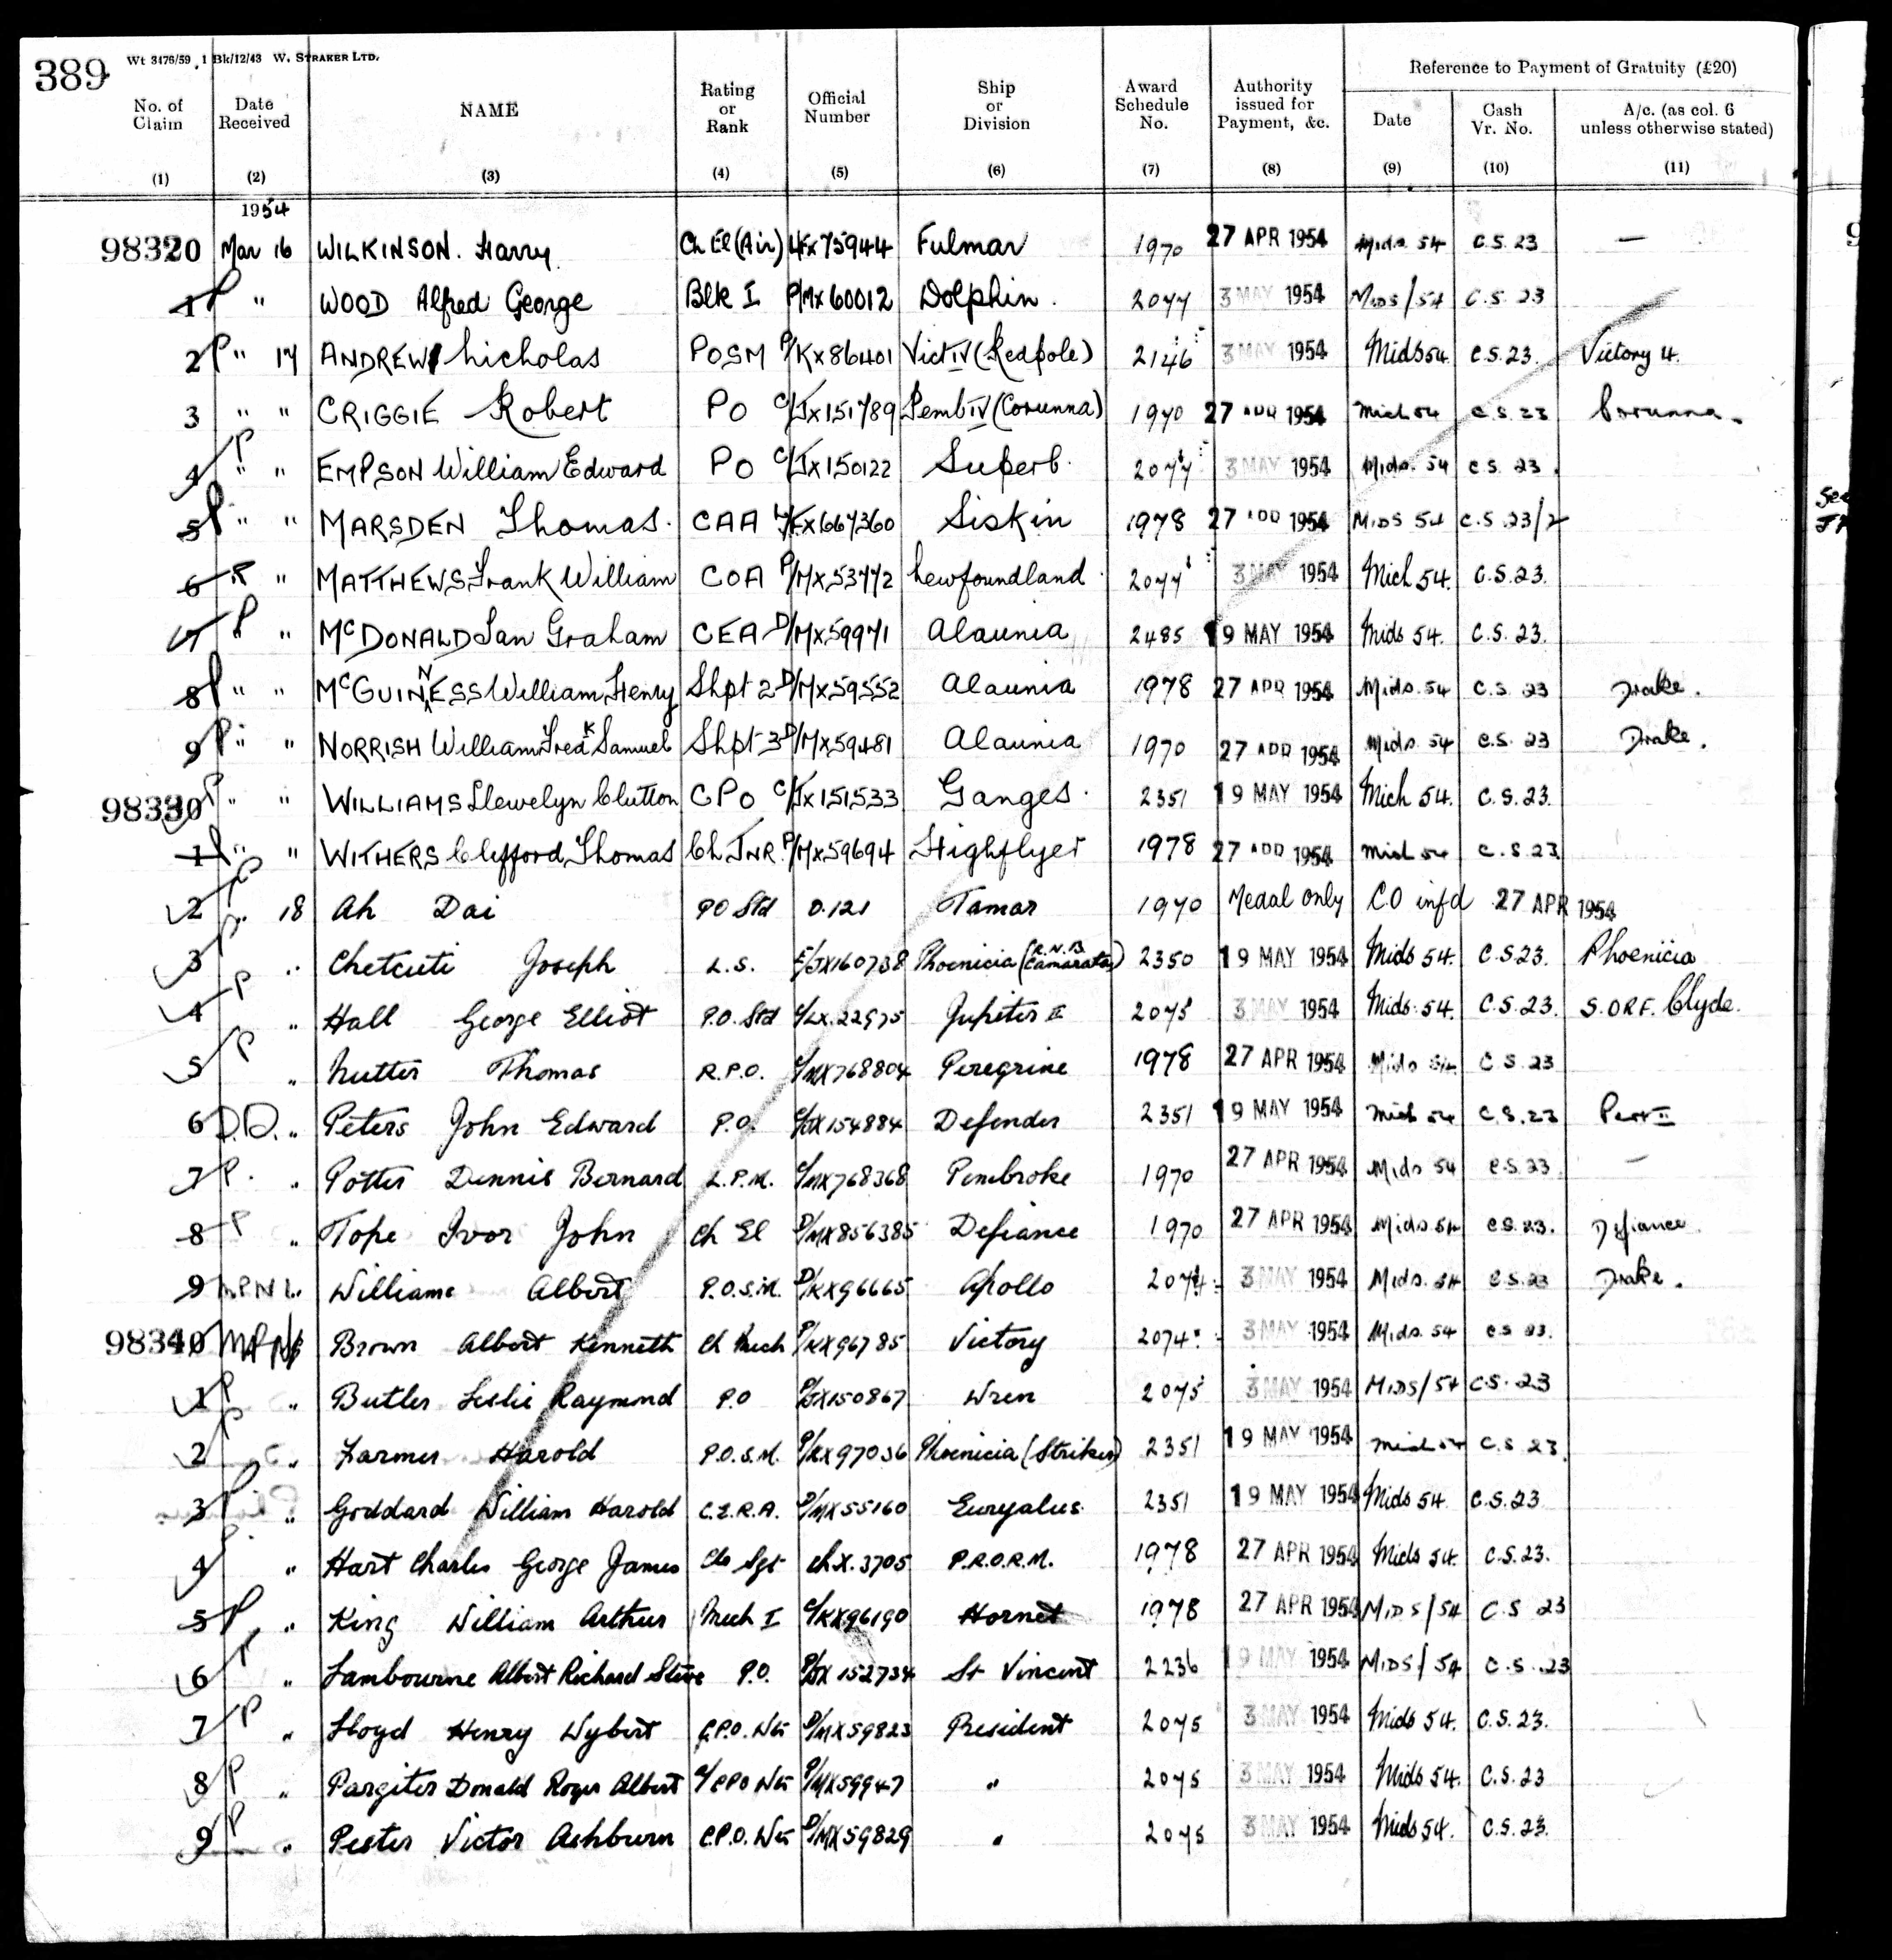 389 Wt 3476/59 1 Bk/12/43 W. STRAKER LTD.
Reference to Payment of Gratuity (£20)
No. of Claim Date Received NAME Rating or Rank Official Number Ship or Division Award Schedule No. Authority issued for Payment, &c. Date Cash Vr. No. A/c. (as col. 6 unless otherwise stated)
(1) (2) (3) (4) (5) (6) (7) (8) (9) (10) (11)
1954
98320 Mar 16 WILKINSON. Harry Ch El (Air) L/Fx 75944 Fulmar 1970 27 APR 1954 Mids. 54 C.S. 23 —
1 P " WOOD Alfred George Blk I P/Mx 60012 Dolphin. 2077 3 MAY 1954 MIDS/54 C.S. 23
2 P " 17 ANDREW Nicholas POSM P/Kx 86401 Vict IV (Redpole) 2146 3 MAY 1954 Mids 54. C.S. 23. Victory 4.
3 " " CRIGGIE Robert PO C/Jx 151789 Pemb IV (Corunna) 1970 27 APR 1954 Mids 54 C.S. 23 Corunna.
4 P " " EMPSON William Edward PO C/Jx 150122 Superb. 2077 3 MAY 1954 Mids. 54 C.S. 23.
5 P " " MARSDEN Thomas. CAA L/Fx 667360 Siskin 1978 27 APR 1954 MIDS 54 C.S. 23/2
6 P " MATTHEWS Frank William COA P/Mx 53772 Newfoundland 2077 3 MAY 1954 Mich 54. C.S. 23.
7 P " McDONALD Ian Graham CEA D/Mx 59971 Alaunia 2485 19 MAY 1954 Mids 54. C.S. 23.
8 P " " McGUINNESS William Henry Shpt 2 D/Mx 59552 Alaunia 1978 27 APR 1954 Mids. 54 C.S. 23 Drake.
9 P " " NORRISH William Fredk Samuel Shpt 3 D/Mx 59481 Alaunia 1970 27 APR 1954 Mids. 54 C.S. 23 Drake.
98330 P " " WILLIAMS Llewelyn Clutton CPO C/Jx 151533 Ganges. 2351 19 MAY 1954 Mich 54. C.S. 23.
1 P " " WITHERS Clifford Thomas Ch JNR. P/Mx 59694 Highflyer 1978 27 APR 1954 Mids 54 C.S. 23
2 P " 18 Ah Dai PO Std O.121 Tamar 1970 Medal only CO infd 27 APR 1954
3 P " Chetcuti Joseph L.S. E/JX160738 Phoenicia (R.N.B. Camarata) 2350 19 MAY 1954 Mids 54. C.S. 23. Phoenicia
4 P " Hall George Elliot P.O. Std C/LX.22975 Jupiter II 2075 3 MAY 1954 Mids. 54. C.S. 23. S.O.R.F. Clyde.
5 P " Nutter Thomas R.P.O. C/MX768804 Peregrine 1978 27 APR 1954 Mids 54 C.S. 23
6 D.D. " Peters John Edward P.O. C/JX154884 Defender 2351 19 MAY 1954 Mids 54 C.S. 23
7 P. " Potter Dennis Bernard L.P.M. C/MX768368 Pembroke 1970 27 APR 1954 Mids 54 C.S. 23. —
8 P " Tope Ivor John Ch El D/MX856385 Defiance 1970 27 APR 1954 Mids 54 C.S. 23. Defiance.
9 " Williams Albert P.O.S.M. D/KX96665 Apollo 2074 3 MAY 1954 Mids. 54 C.S. 23 Drake.
98340 Brown Albert Kenneth Ch Mech P/KX96785 Victory 2074 3 MAY 1954 Mids. 54 C.S. 23.
1 P " Butler Leslie Raymond P.O P/JX150867 Wren 2075 3 MAY 1954 MIDS/54 C.S. 23
2 P " Farmer Harold P.O.S.M. P/KX97036 Phoenicia (Striker) 2351 19 MAY 1954 Mids 54 C.S. 23.
3 P " Goddard William Harold C.E.R.A. P/MX55160 Euryalus. 2351 19 MAY 1954 Mids 54. C.S. 23
4 " Hart Charles George James Clr Sgt Ch.X.3705 P.R.O.R.M. 1978 27 APR 1954 Mids 54. C.S. 23.
5 P " King William Arthur Mech I C/KX96190 Hornet 1978 27 APR 1954 MIDS/54 C.S 23
6 P " Lambourne Albert Richard Steve P.O. P/JX 152734 St Vincent 2236 19 MAY 1954 MIDS/54 C.S. 23
7 P " Lloyd Henry Wybert C.P.O. Wtr P/MX59823 President 2075 3 MAY 1954 Mids 54. C.S. 23.
8 P " Pargiter Donald Roger Albert A/CPO Wtr P/MX59947 " 2075 3 MAY 1954 Mids 54. C.S. 23
9 P " Pester Victor Ashburn C.P.O. Wtr P/MX59829 " 2075 3 MAY 1954 Mids 54. C.S. 23.